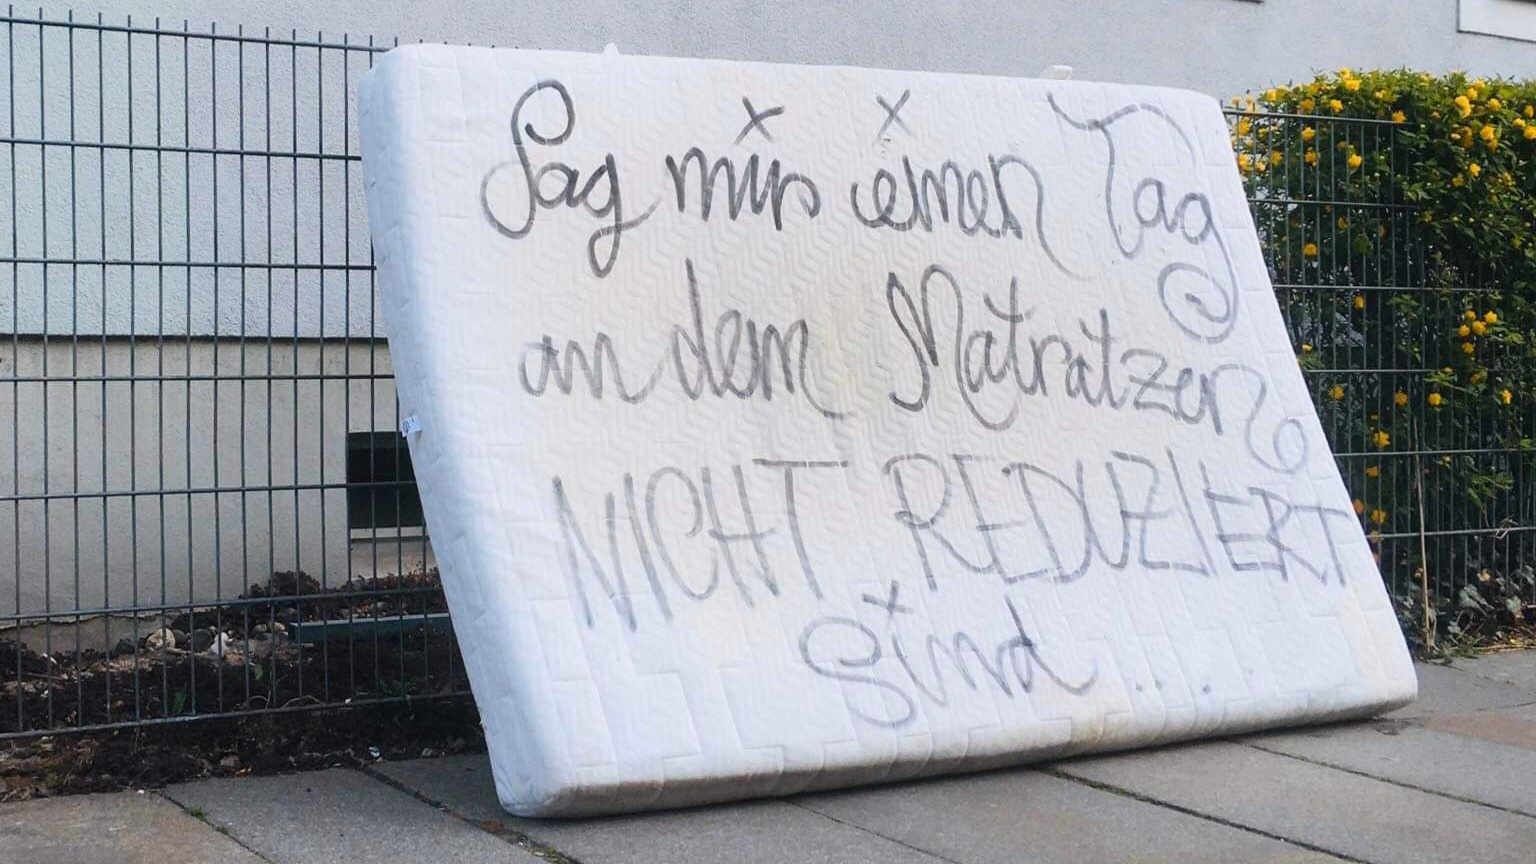 Sag mir einen Tag
an dem Matratzen
NICHT REDUZIERT
sind ...